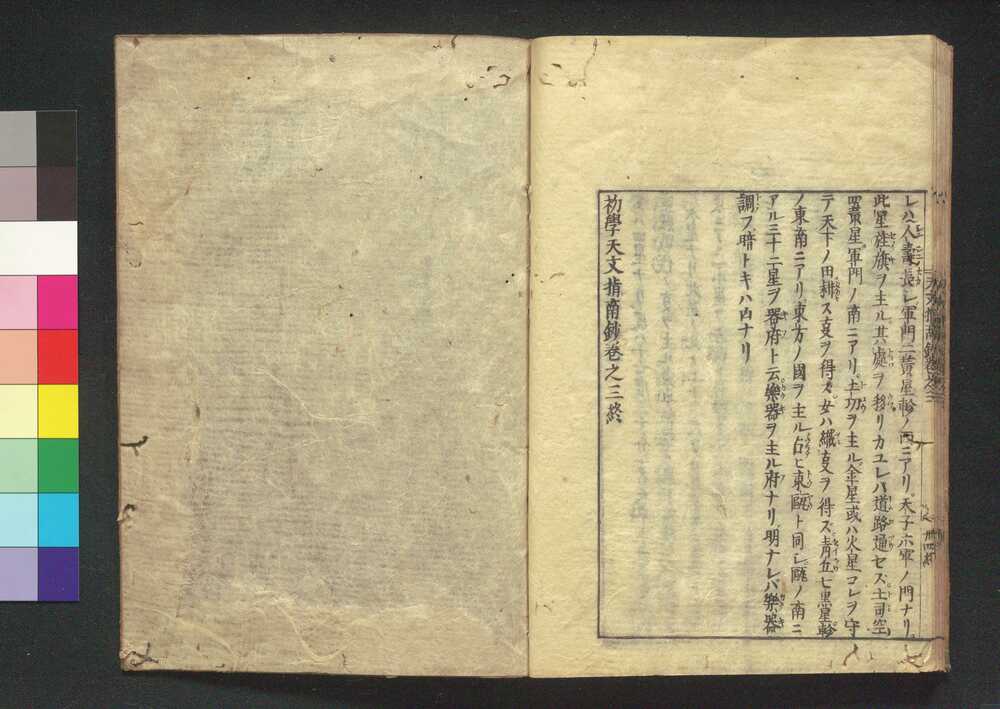 レハ人壽長シ軍門二黄星軫ノ西ニアリ天子六軍ノ門ナリ
此星旌旗ヲ主ル其處ヲ移リカユレハ道路通セス土司空
四黄星軍門ノ南ニアリ土功ヲ主ル金星或ハ火星コレヲ守
テ天下ノ田耕ス亥ヲ得ズ女ハ織亥ヲ得ズ青丘七黒星軫
ノ東南ニアリ東方ノ國ヲ主ル占ヒ東甌ト同シ甌ノ南ニ
アル三十二星ヲ器府ト云樂器ヲ主ル府ナリ明ナレバ樂器
調フ暗トキハ凶ナリ
初學天文指南鈔卷之三終